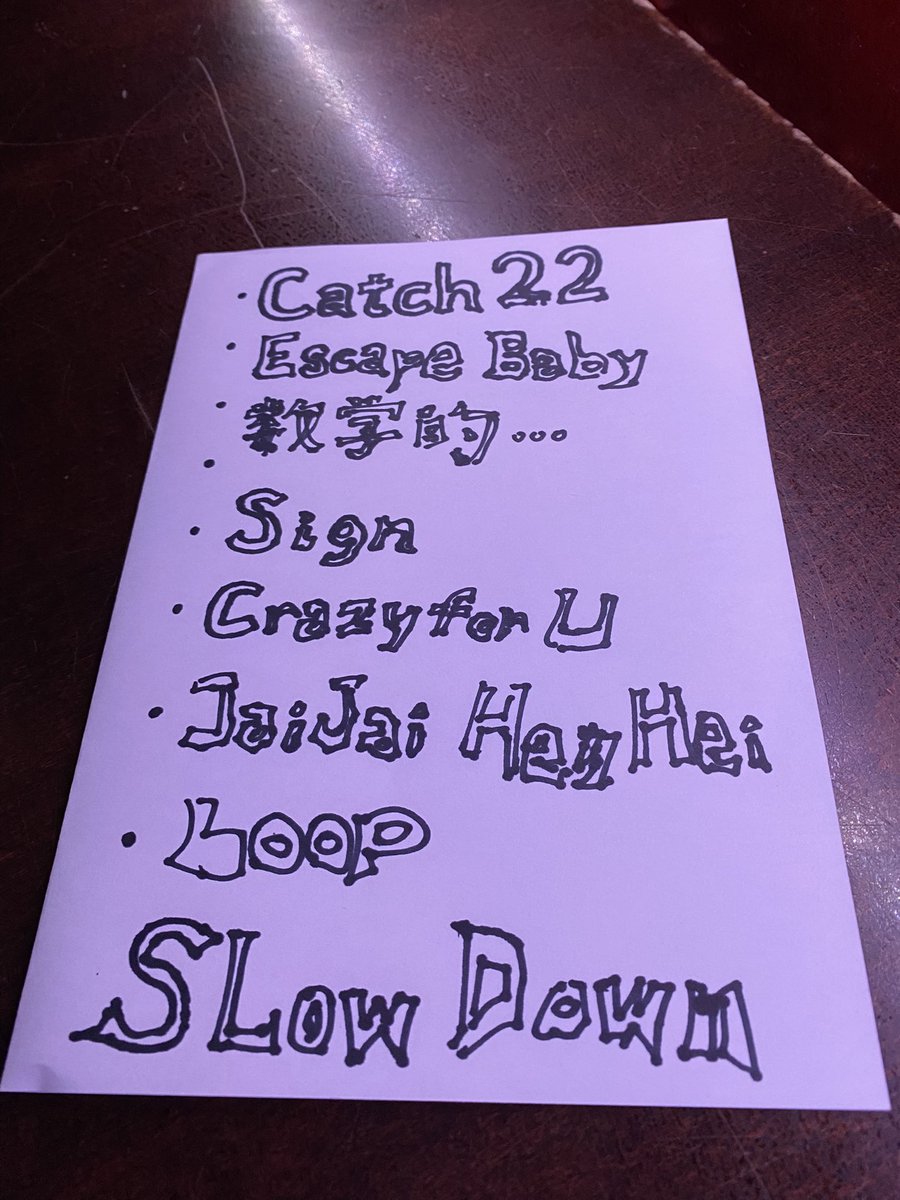 · Catch 22
· Escape Baby
· 数学的...
·
· Sign
· Crazy for U
· JaiJai HeyHei
· Loop
SLow Down